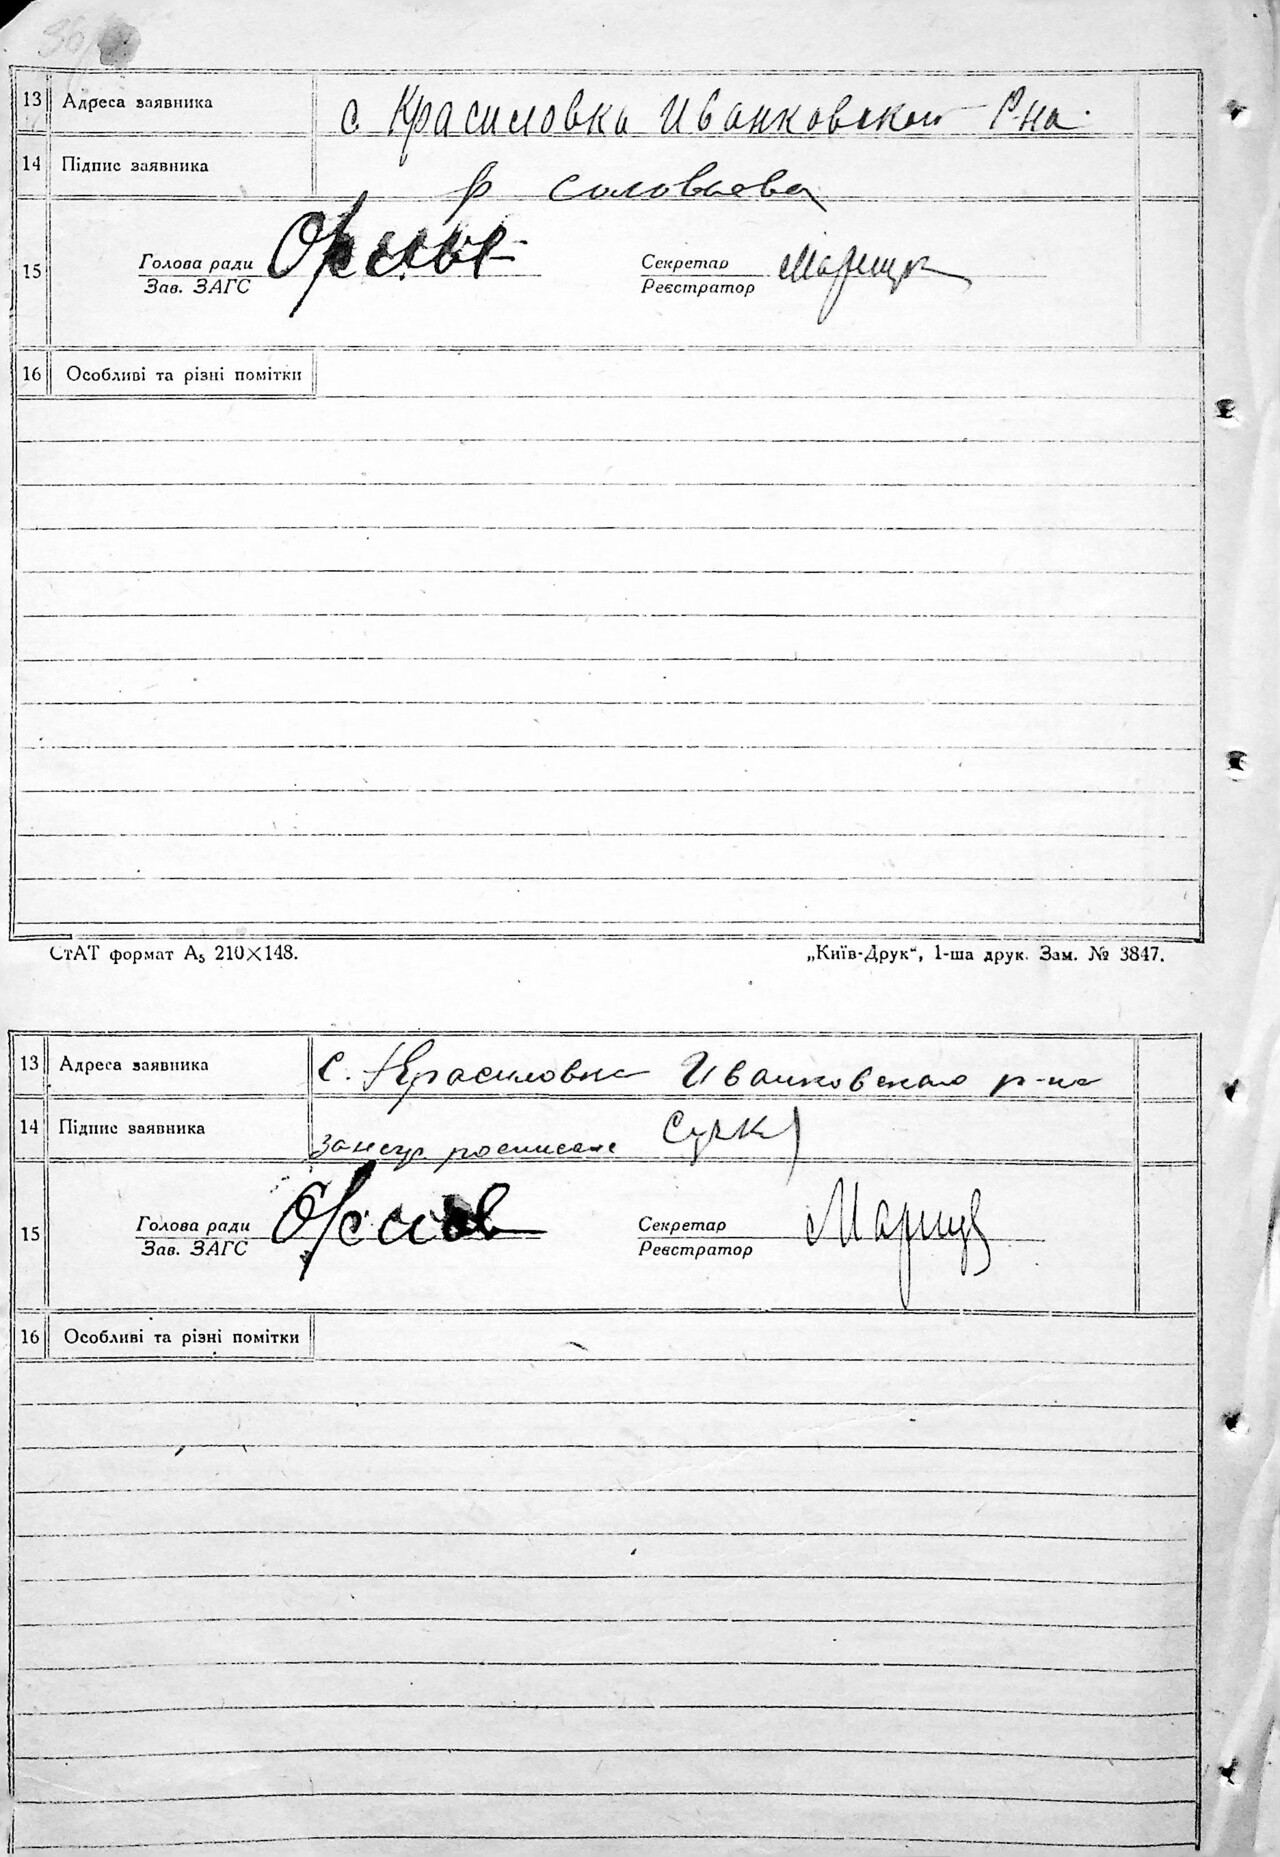 13 Адреса заявника с. Красиловка Иванковского р-на.
14 Підпис заявника Р Соловьева
15 Голова ради Секретар
Зав. ЗАГС Реєстратор
16 Особливі та різні помітки
СтАТ формат А₅ 210×148. „Київ-Друк“, 1-ша друк. Зам. № 3847.
13 Адреса заявника с. Красиловка Иванковского р-на
14 Підпис заявника
15 Голова ради Секретар
Зав. ЗАГС Реєстратор
16 Особливі та різні помітки